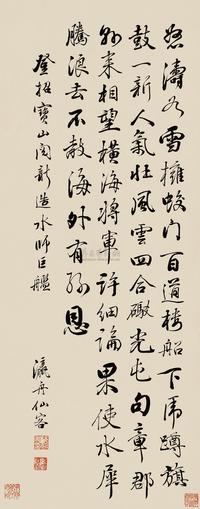 怒濤如雪擁蛟门百道楼船下虎蹲旗
鼓一新人氣壮風雲四合礮光屯句章郡
外来相望橫海將軍許细論果使水犀
騰浪去不教海外有孫恩
登招寶山阅新造水師巨艦
瀛舟仙客